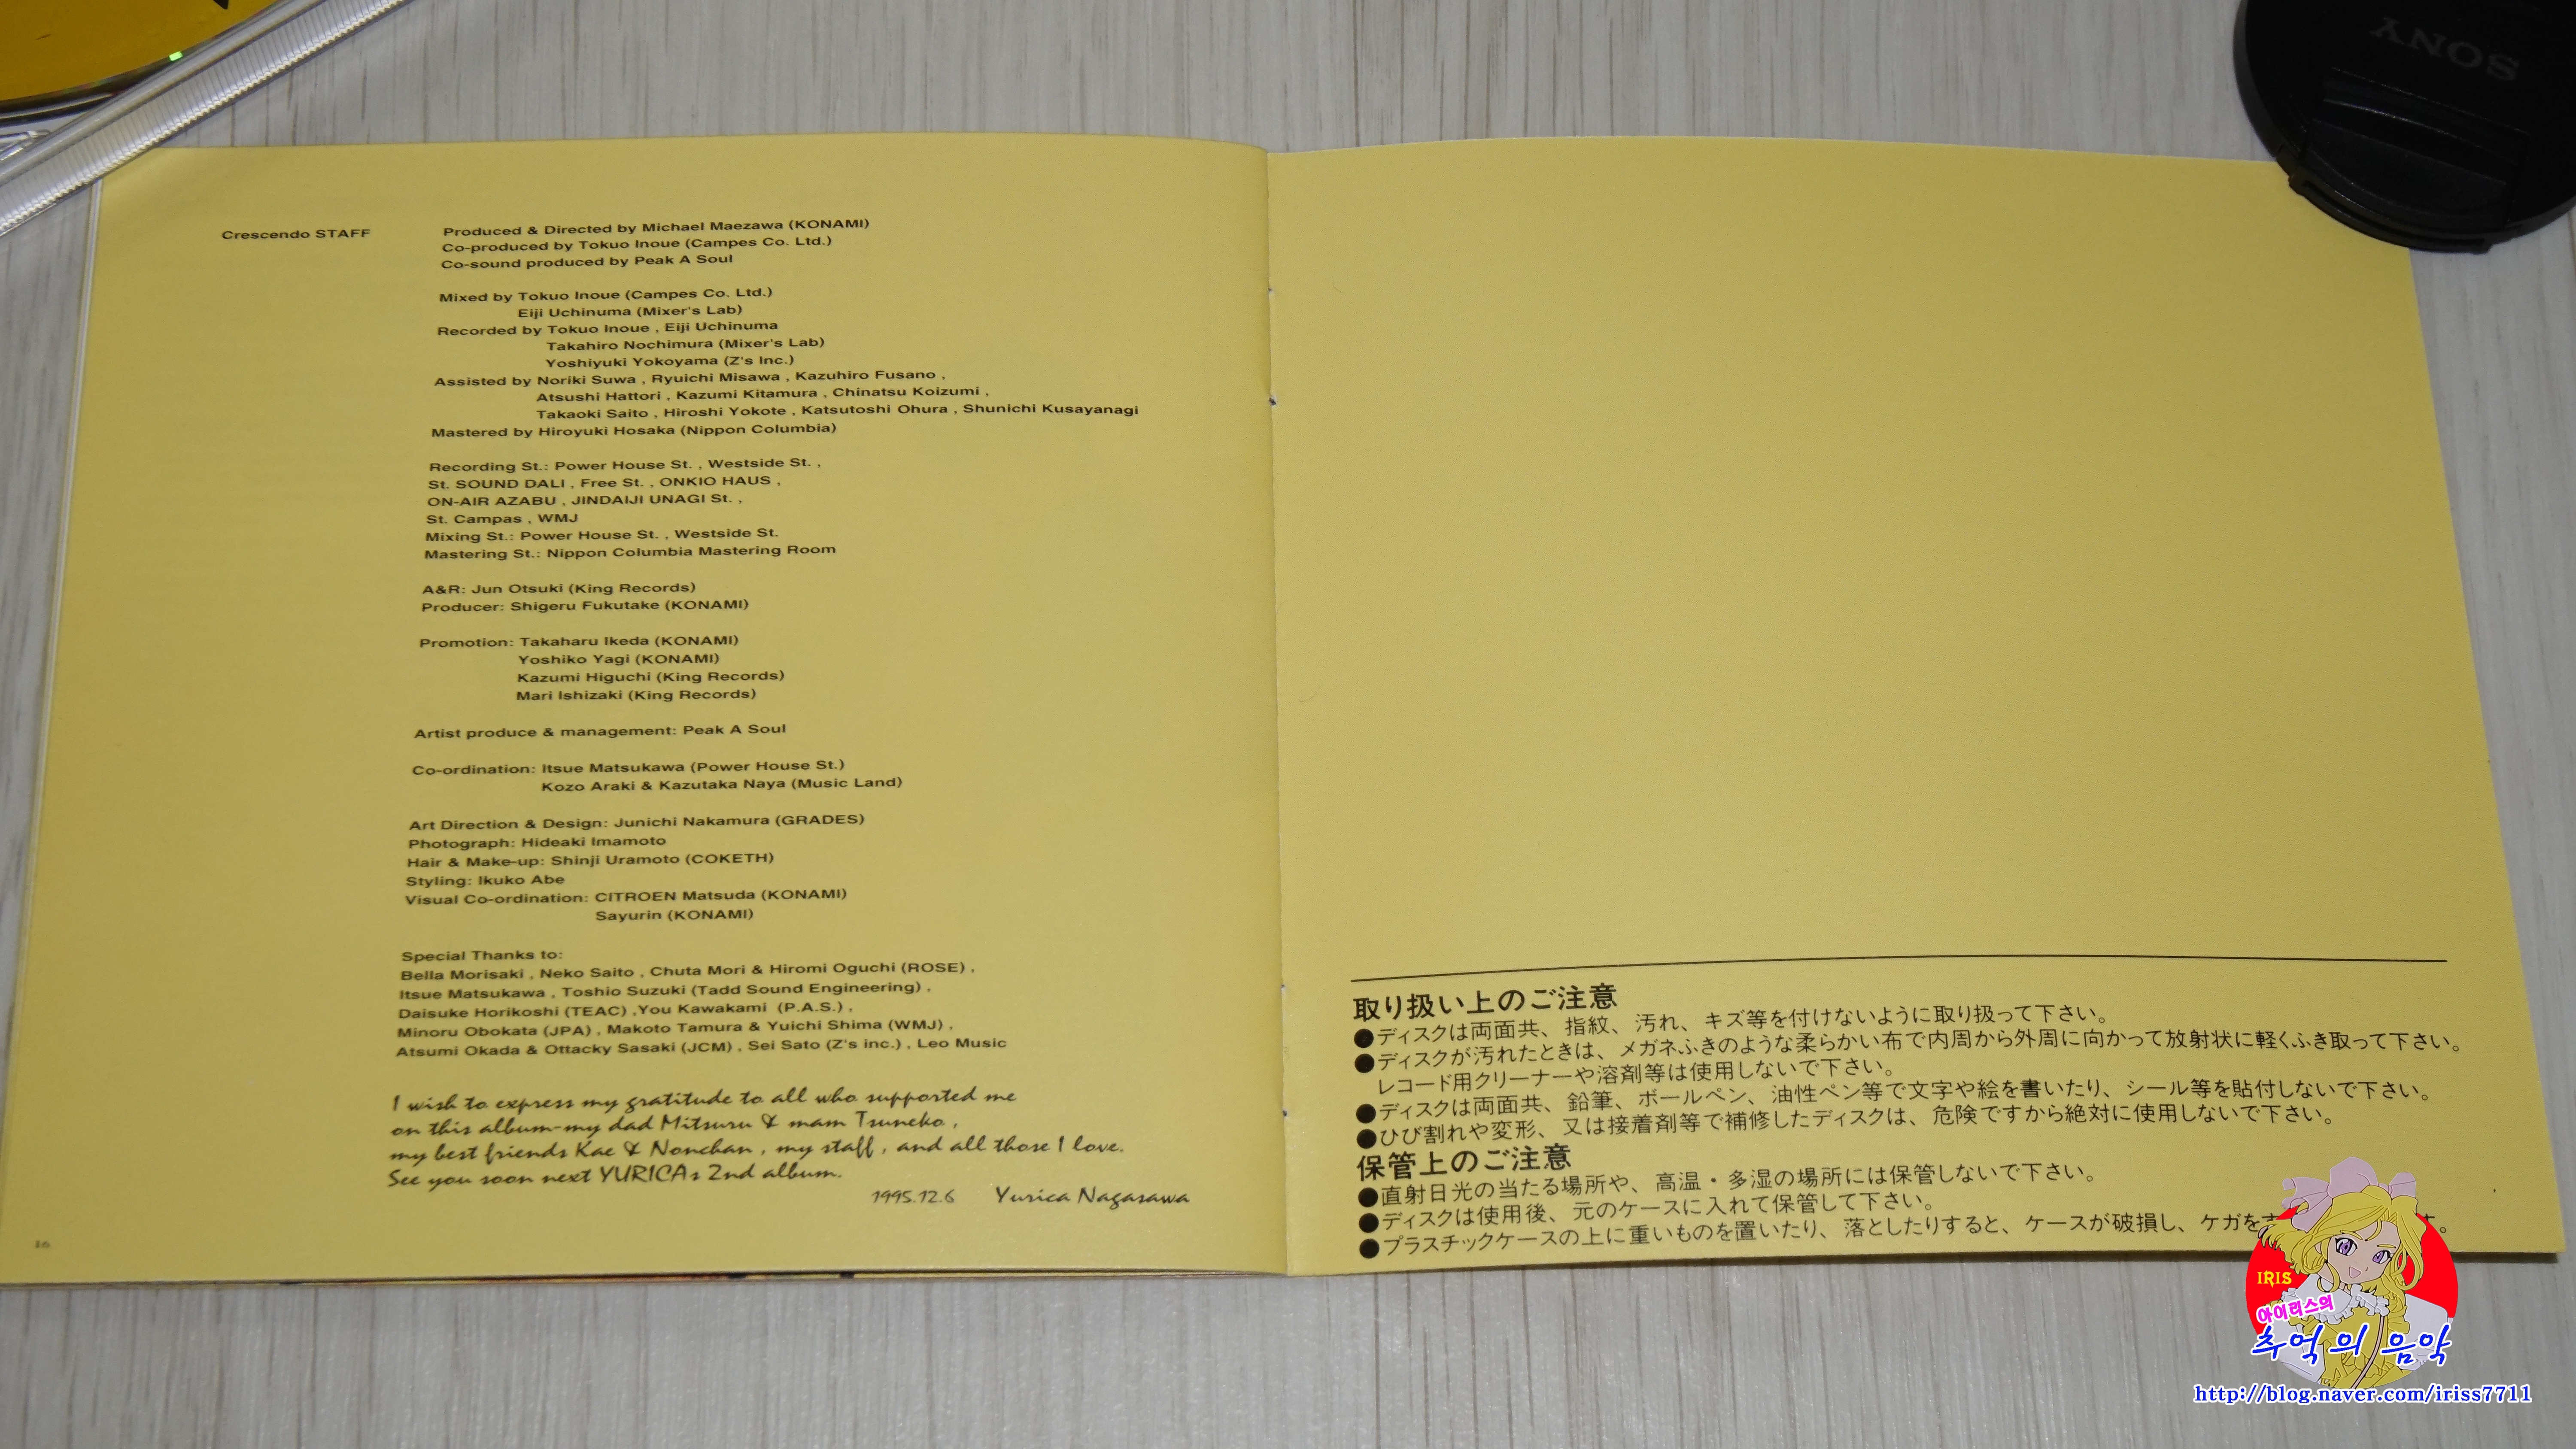 SONY
Crescendo STAFF
Produced & Directed by Michael Maezawa (KONAMI)
Co-produced by Tokuo Inoue (Campes Co. Ltd.)
Co-sound produced by Peak A Soul
Mixed by Tokuo Inoue (Campes Co. Ltd.)
Eiji Uchinuma (Mixer's Lab)
Recorded by Tokuo Inoue , Eiji Uchinuma
Takahiro Nochimura (Mixer's Lab)
Yoshiyuki Yokoyama (Z's Inc.)
Assisted by Noriki Suwa , Ryuichi Misawa , Kazuhiro Fusano ,
Atsushi Hattori , Kazumi Kitamura , Chinatsu Koizumi ,
Takaoki Saito , Hiroshi Yokote , Katsutoshi Ohura , Shunichi Kusayanagi
Mastered by Hiroyuki Hosaka (Nippon Columbia)
Recording St.: Power House St. , Westside St. ,
St. SOUND DALI , Free St. , ONKIO HAUS ,
ON-AIR AZABU , JINDAIJI UNAGI St. ,
St. Campas , WMJ
Mixing St.: Power House St. , Westside St.
Mastering St.: Nippon Columbia Mastering Room
A&R: Jun Otsuki (King Records)
Producer: Shigeru Fukutake (KONAMI)
Promotion: Takaharu Ikeda (KONAMI)
Yoshiko Yagi (KONAMI)
Kazumi Higuchi (King Records)
Mari Ishizaki (King Records)
Artist produce & management: Peak A Soul
Co-ordination: Itsue Matsukawa (Power House St.)
Kozo Araki & Kazutaka Naya (Music Land)
Art Direction & Design: Junichi Nakamura (GRADES)
Photograph: Hideaki Imamoto
Hair & Make-up: Shinji Uramoto (COKETH)
Styling: Ikuko Abe
Visual Co-ordination: CITROEN Matsuda (KONAMI)
Sayurin (KONAMI)
Special Thanks to:
Bella Morisaki , Neko Saito , Chuta Mori & Hiromi Oguchi (ROSE) ,
Itsue Matsukawa , Toshio Suzuki (Tadd Sound Engineering) ,
Daisuke Horikoshi (TEAC) ,You Kawakami (P.A.S.) ,
Minoru Obokata (JPA) , Makoto Tamura & Yuichi Shima (WMJ) ,
Atsumi Okada & Ottacky Sasaki (JCM) , Sei Sato (Z's inc.) , Leo Music
I wish to express my gratitude to all who supported me
on this album-my dad Mitsuru & mam Tsuneko ,
my best friends Kae & Nonchan , my staff , and all those I love.
See you soon next YURICAs 2nd album.
1995.12.6 Yurica Nagasawa
16
取り扱い上のご注意
●ディスクは両面共、指紋、汚れ、キズ等を付けないように取り扱って下さい。
●ディスクが汚れたときは、メガネふきのような柔らかい布で内周から外周に向かって放射状に軽くふき取って下さい。
レコード用クリーナーや溶剤等は使用しないで下さい。
●ディスクは両面共、鉛筆、ボールペン、油性ペン等で文字や絵を書いたり、シール等を貼付しないで下さい。
●ひび割れや変形、又は接着剤等で補修したディスクは、危険ですから絶対に使用しないで下さい。
保管上のご注意
●直射日光の当たる場所や、高温・多湿の場所には保管しないで下さい。
●ディスクは使用後、元のケースに入れて保管して下さい。
●プラスチックケースの上に重いものを置いたり、落としたりすると、ケースが破損し、ケガを
IRIS
아이리스의
추억의 음악
http://blog.naver.com/iriss7711